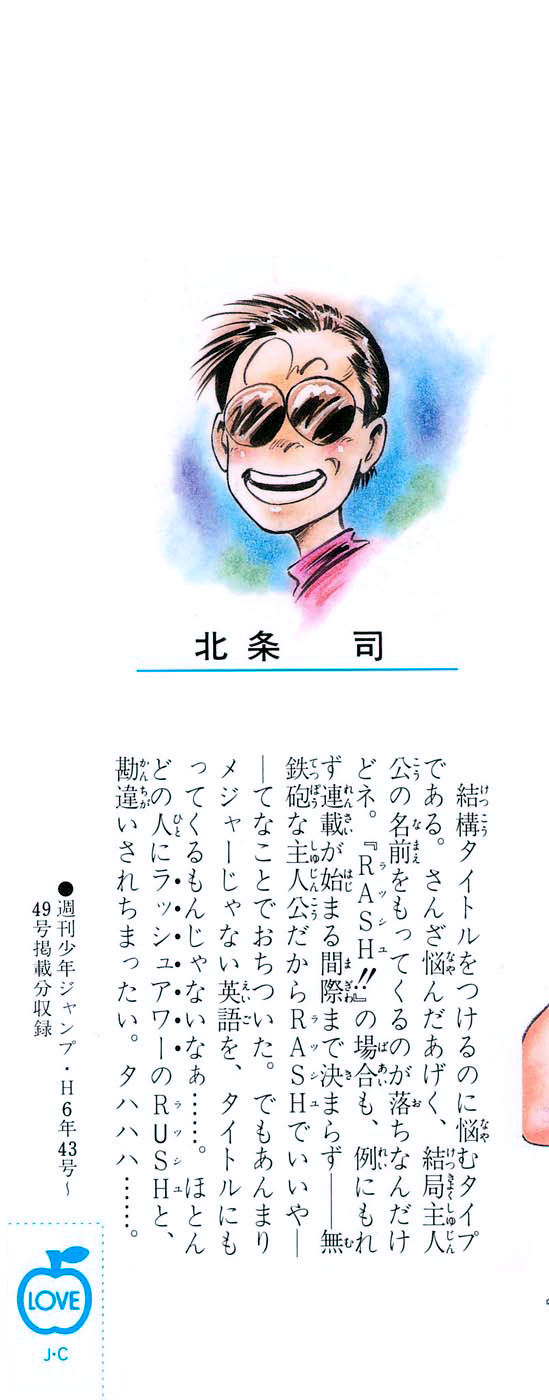 北条 司
結構タイトルをつけるのに悩むタイプ
である。さんざ悩んだあげく、結局主人
公の名前をもってくるのが落ちなんだけ
どネ。『RASH!!』の場合も、例にもれ
ず連載が始まる間際まで決まらず――無
鉄砲な主人公だからRASHでいいや―
―てなことでおちついた。でもあんまり
メジャーじゃない英語を、タイトルにも
ってくるもんじゃないなぁ……。ほとん
どの人にラッシュアワーのRUSHと、
勘違いされちまったい。タハハハ……。
●週刊少年ジャンプ・H6年43号〜
49号掲載分収録
LOVE
J・C